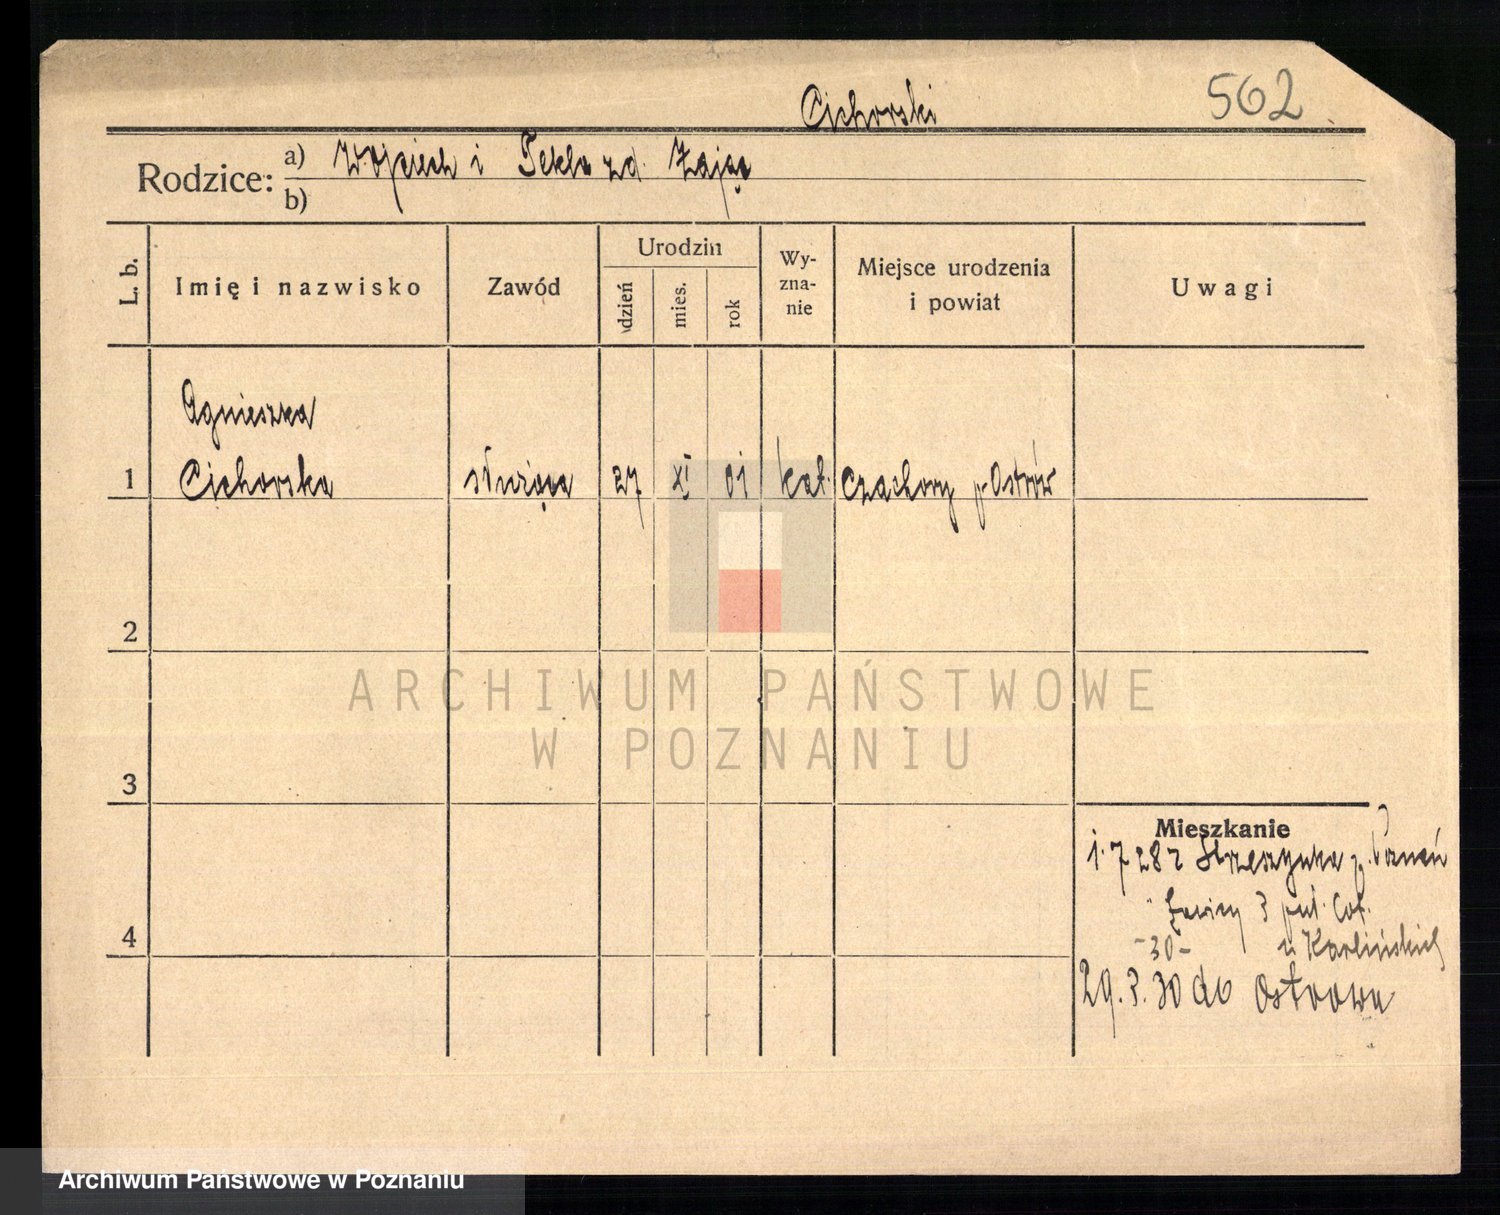 Cichorski
562
Rodzice: a) Wojciech i Tekla zd. Zając
b)
L. b. Imię i nazwisko Zawód Urodzin dzień mies. rok Wy-zna-nie Miejsce urodzenia i powiat Uwagi
Agnieszka
1 Cichorska służąca 27 XI 01 kat. Czachory p. Ostrów
2
ARCHIWUM PAŃSTWOWE
W POZNANIU
3
Mieszkanie
1.7 28 z Strzeszynka p. Poznań
3
4 -30- u Karlińskich
29.3.30 do Ostrowa
Archiwum Państwowe w Poznaniu